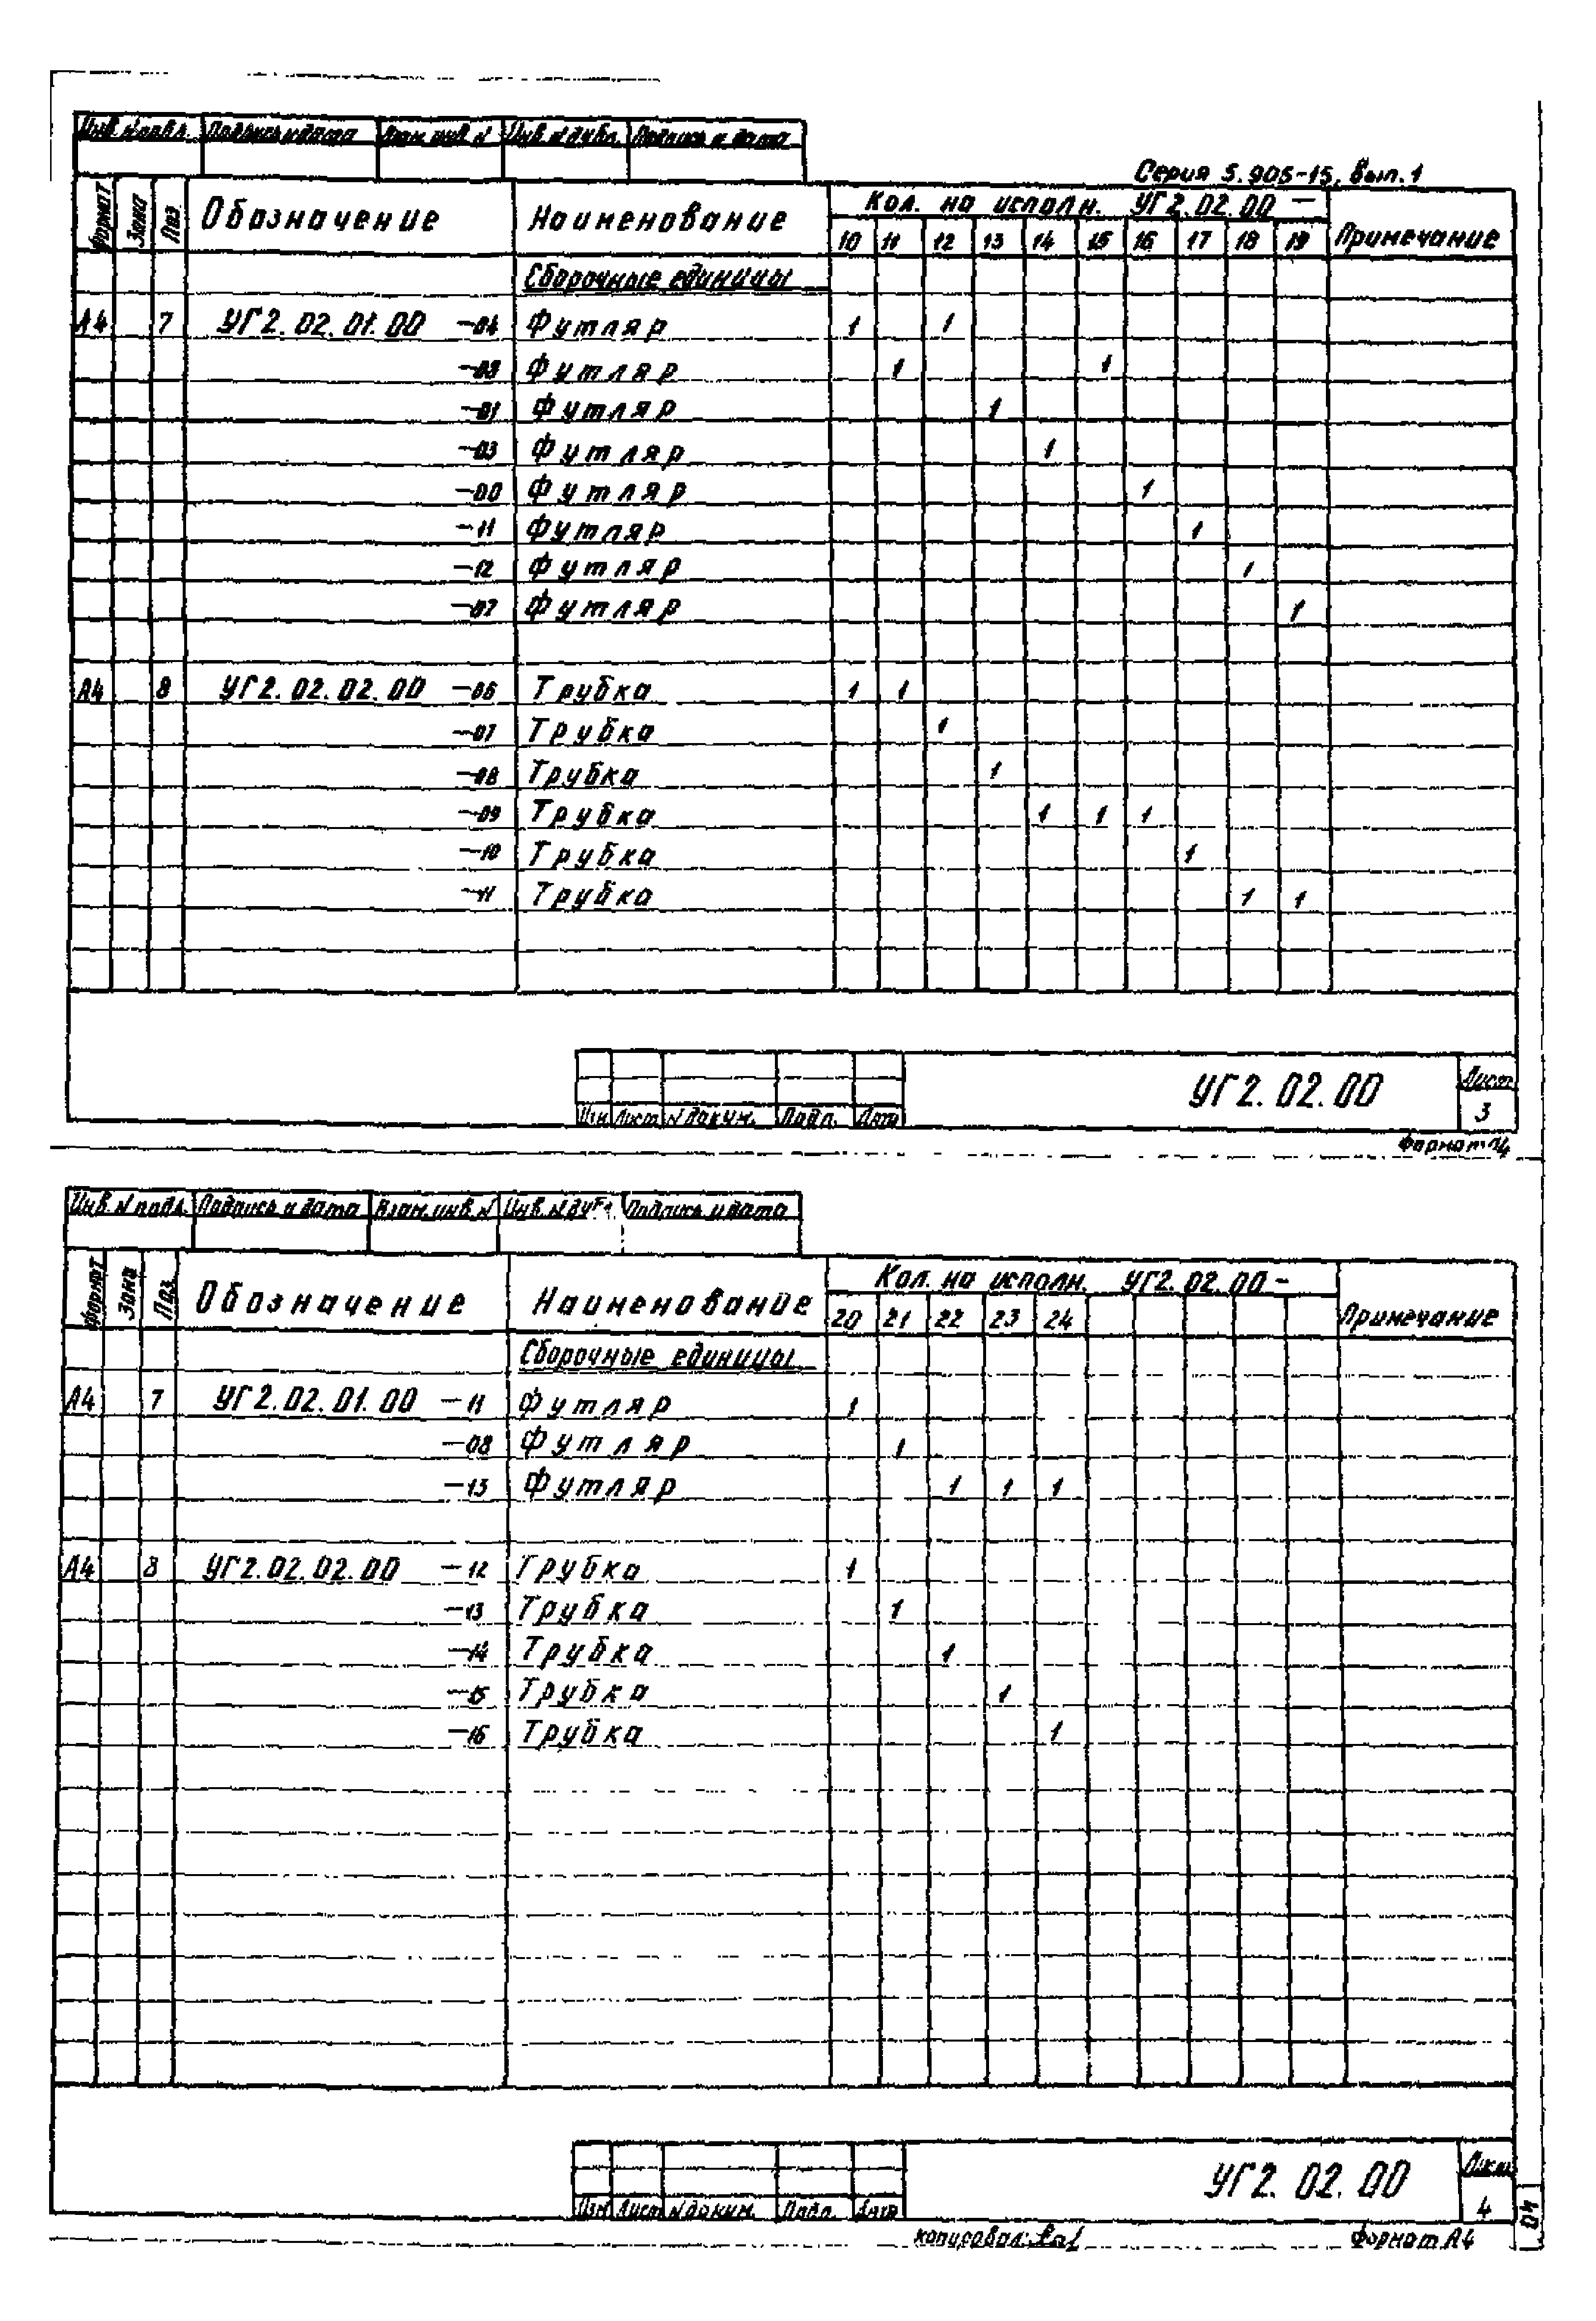 Инв.№подл. Подпись и дата Взам.инв.№ Инв.№дубл. Подпись и дата
Серия 5.905-15, вып.1
Формат Зона Поз. Обозначение Наименование Кол. на исполн. УГ2.02.00 — Примечание
10 11 12 13 14 15 16 17 18 19
Сборочные единицы
А4 7 УГ2.02.01.00 -04 Футляр 1 1
Футляр 1 1
-01 Футляр 1
-03 Футляр 1
-00 Футляр 1
-11 Футляр 1
-12 Футляр 1
-07 Футляр 1
А4 8 УГ2.02.02.00 -06 Трубка 1 1
-07 Трубка 1
-08 Трубка 1
-09 Трубка 1 1 1
-10 Трубка 1
-11 Трубка 1 1
УГ2.02.00 Лист
3
Изм Лист №докум. Подп. Дата
Формат А4
Инв.№подл. Подпись и дата Взам.инв.№ Инв.№дубл. Подпись и дата
Формат Зона Поз. Обозначение Наименование Кол. на исполн. УГ2.02.00- Примечание
20 21 22 23 24
Сборочные единицы
А4 7 УГ2.02.01.00 -11 Футляр 1
-08 Футляр 1
-13 Футляр 1 1 1
А4 8 УГ2.02.02.00 -12 Трубка 1
-13 Трубка 1
-14 Трубка 1
-15 Трубка 1
-16 Трубка 1
УГ2.02.00 Лист
4
Изм Лист №докум. Подп. Дата
копировал: Формат А4
40